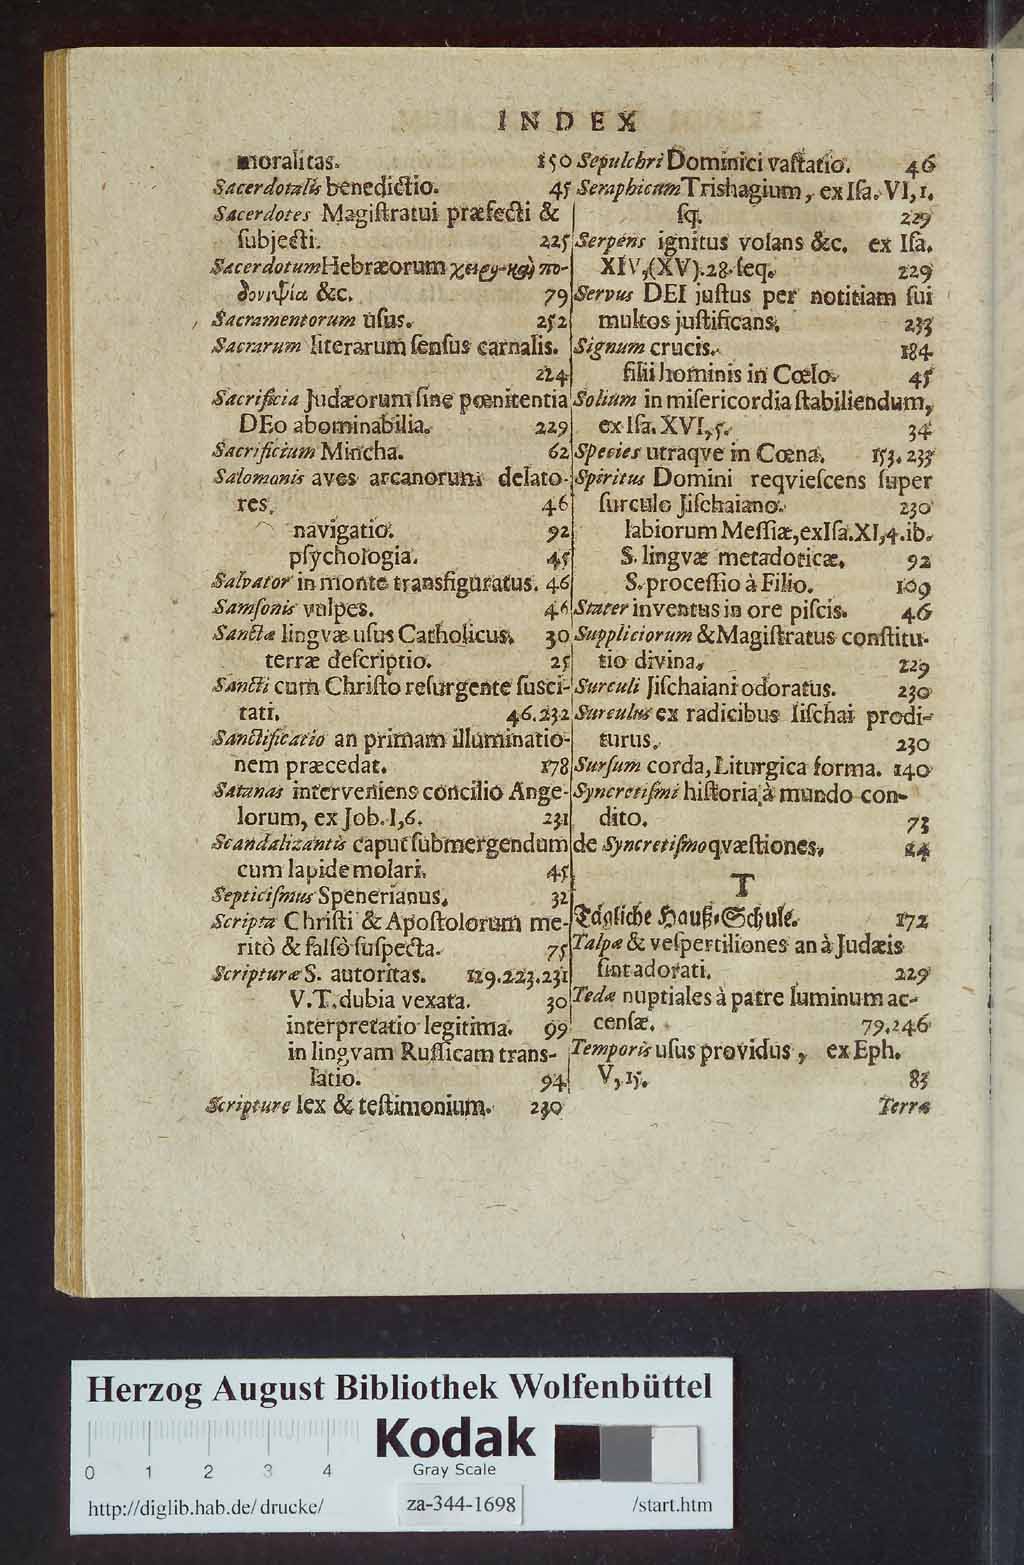 INDEX
moralitas. 150
Sacerdotalis benedictio. 45
Sacerdotes Magiſtratui præfecti &
ſubjecti. 225
Sacerdotum Hebræorum χειρο-καὶ πο-
δονιψία &c. 79
Sacramentorum uſus. 252
Sacrarum literarum ſenſus carnalis.
224
Sacrificia Judæorum ſine pœnitentia
DEo abominabilia. 229
Sacrificium Mincha. 62
Salomonis aves arcanorum delato-
res. 46
navigatio. 92
pſychologia. 45
Salvator in monte transfiguratus. 46
Samſonis vulpes. 46
Sanctæ lingvæ uſus Catholicus. 30
terræ deſcriptio. 25
Sancti cum Chriſto reſurgente ſuſci-
tati. 46.232
Sanctificatio an primam illuminatio-
nem præcedat. 178
Satanas interveniens concilio Ange-
lorum, ex Job. I,6. 231
Scandalizantis caput ſubmergendum
cum lapide molari. 45
Septiciſmus Spenerianus. 32
Scripta Chriſti & Apoſtolorum me-
ritò & falſò ſuſpecta. 75
Scripturæ S. autoritas. 129.223.231
V.T. dubia vexata. 30
interpretatio legitima. 99
in lingvam Ruſſicam trans-
latio. 94
Scripturæ lex & teſtimonium. 230
Sepulchri Dominici vaſtatio. 46
Seraphicum Trishagium, ex Iſa. VI, 1.
ſq. 229
Serpens ignitus volans &c. ex Iſa.
XIV,(XV).28. ſeq. 229
Servus DEI juſtus per notitiam ſui
multos juſtificans. 233
Signum crucis. 184
filii hominis in Cœlo. 45
Solium in miſericordia ſtabiliendum,
ex Iſa. XVI, 5. 34
Species utraqve in Cœna. 153.233
Spiritus Domini reqvieſcens ſuper
ſurculo Jiſchaiano. 230
labiorum Meſſiæ, ex Iſa. XI,4. ib.
S. lingvæ metadoticæ. 92
S. proceſſio à Filio. 109
Stater inventus in ore piſcis. 46
Suppliciorum & Magiſtratus conſtitu-
tio divina. 229
Surculi Jiſchaiani odoratus. 230
Surculus ex radicibus Iiſchai prodi-
turus. 230
Surſum corda, Liturgica forma. 140
Syncretiſmi hiſtoria à mundo con-
dito. 73
de Syncretiſmo qvæſtiones. 24
T
Tägliche Hauß-Schule. 172
Talpæ & veſpertiliones an à Judæis
ſint adorati. 229
Tedæ nuptiales à patre luminum ac-
cenſæ. 79.246
Temporis uſus providus, ex Eph.
V, 15. 83
Terræ
Herzog August Bibliothek Wolfenbüttel
Kodak
Gray Scale
0 1 2 3 4
http://diglib.hab.de/drucke/ za-344-1698 /start.htm